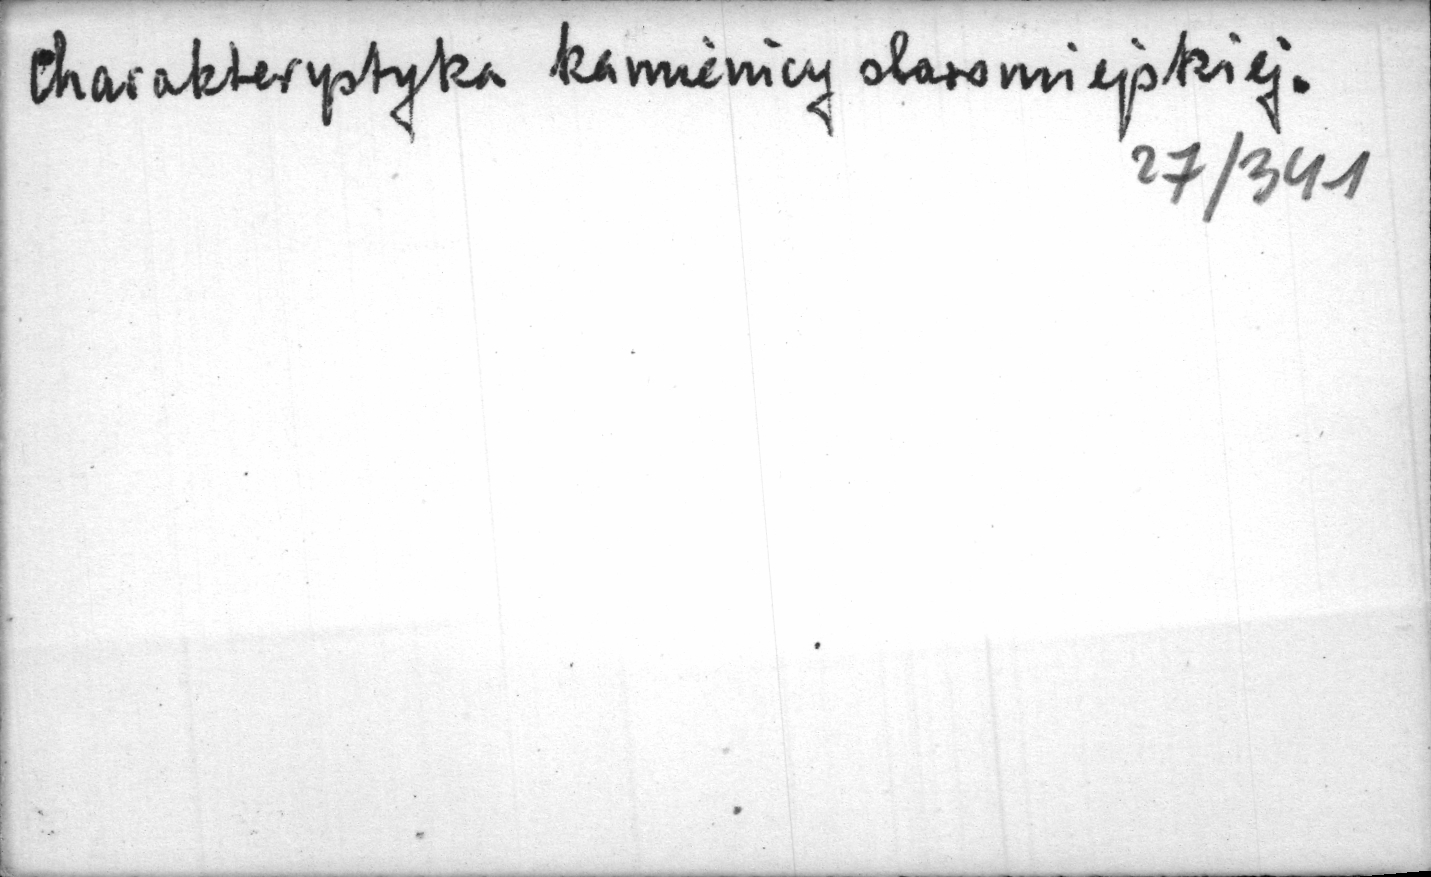 Charakterystyka kamienicy staromiejskiej.
27/341